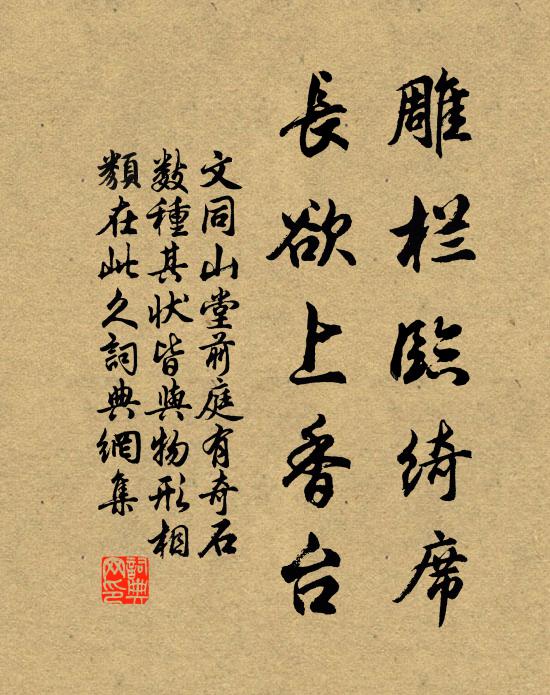 雕栏臨綺席
長欲上香台
文同山堂前庭有奇石
数種其状皆與物形相
類在此久詞典網集
詞典網印